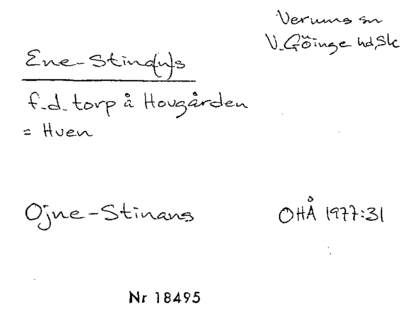 Verums sn
V. Göinge hd, Sk
Ene-Stina(n)s
f.d. torp å Hovgården
= Huen
Ojne-Stinans
OHÅ 1977:31
Nr 18495